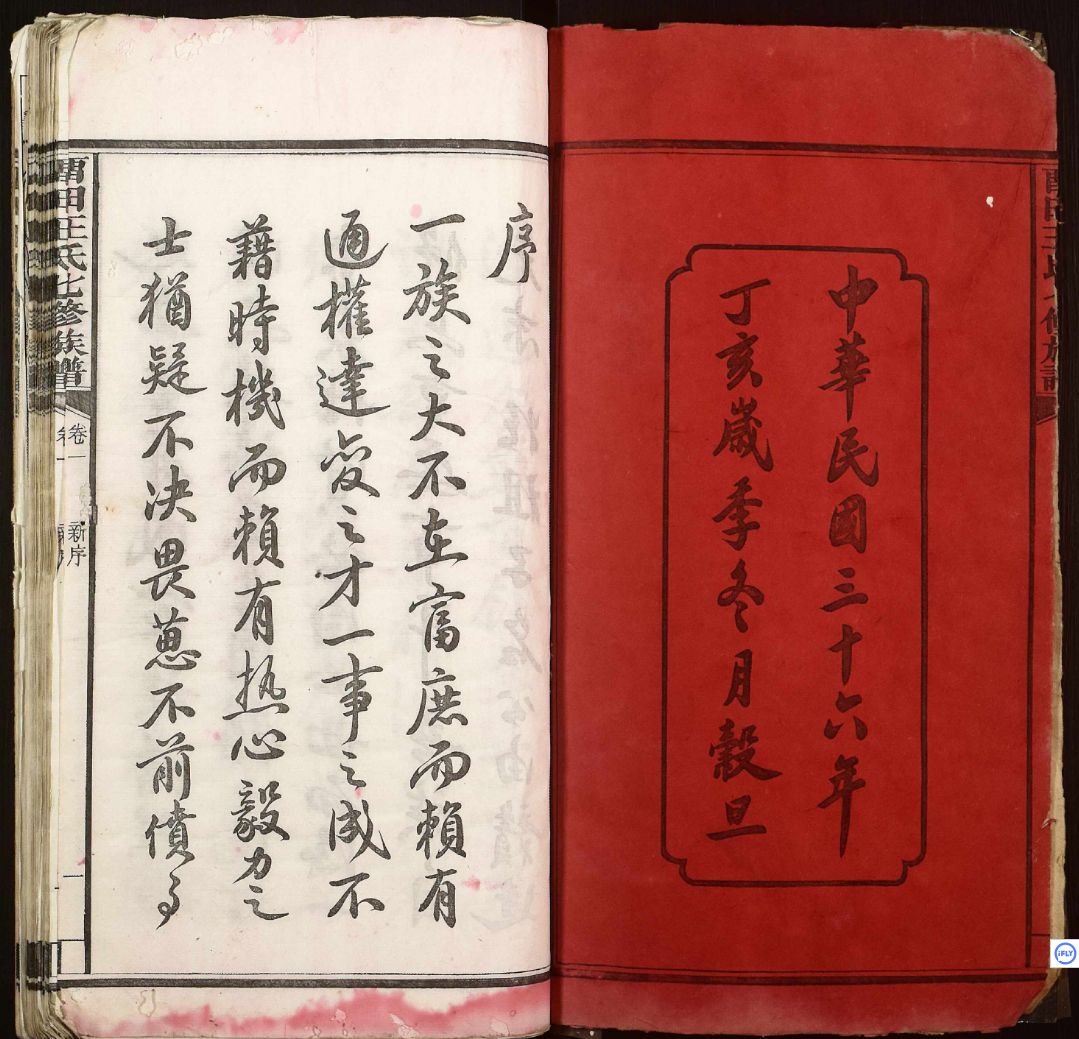 中華民國三十六年
丁亥歲季冬月穀旦
序
一族之大不在富庶而賴有
通權達變之才一事之成不
藉時機而賴有热心毅力之
士猶疑不决畏葸不前僨事
田王氏七修族譜
卷一
新序
一
iFLY